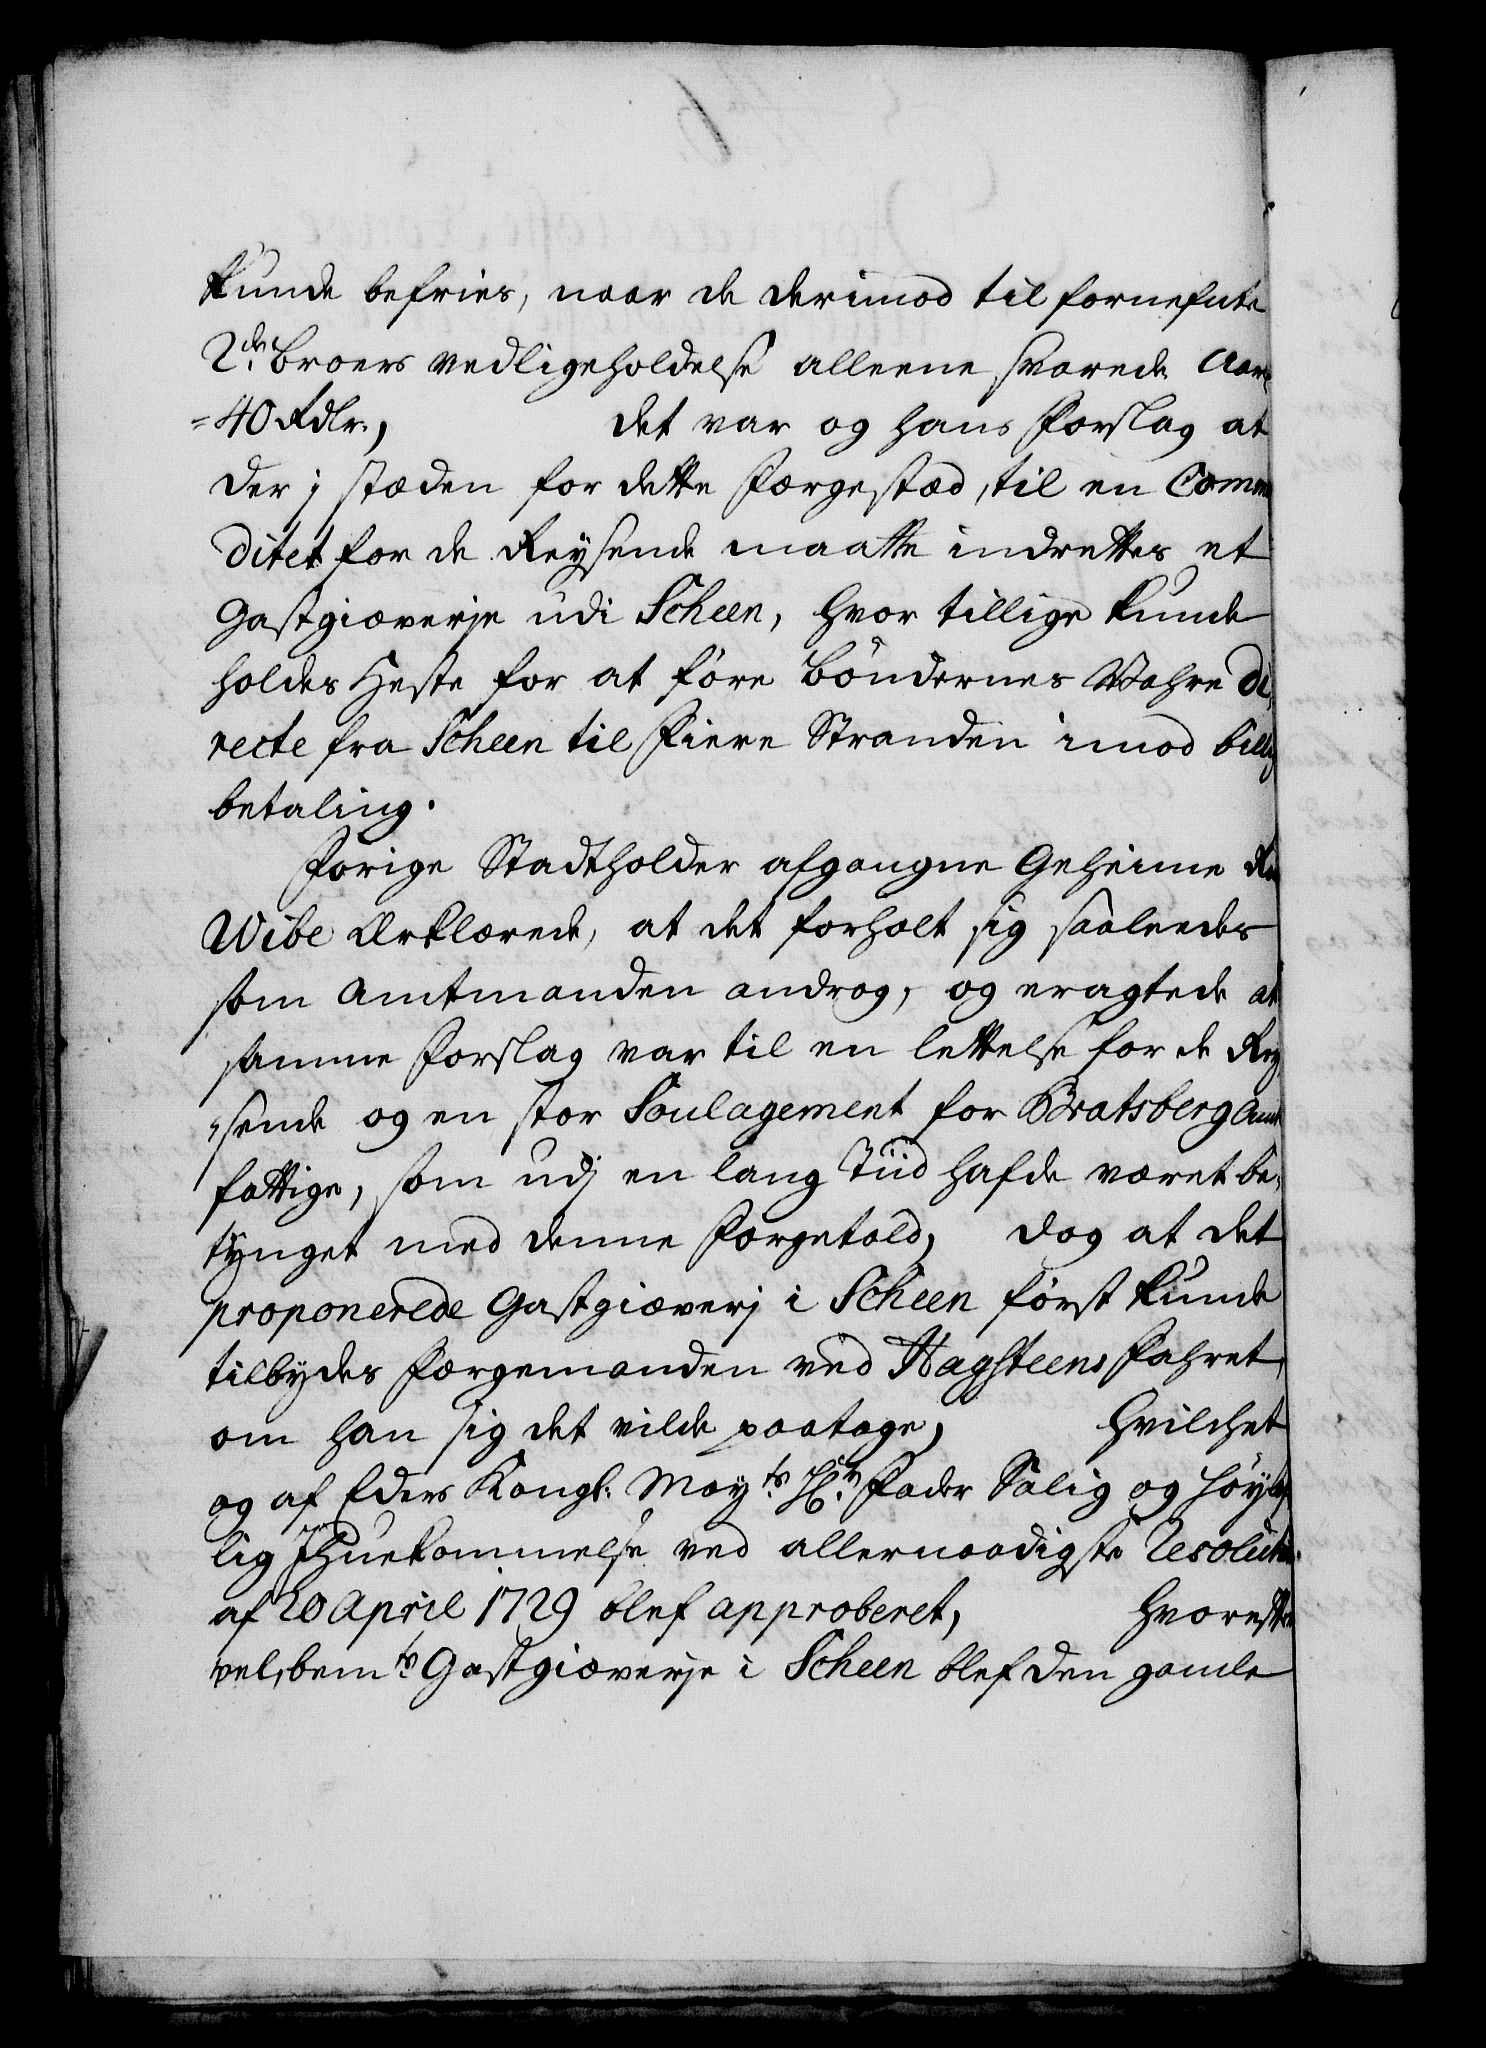 kunde befries, naar de derimod til fornefnte
2de Broers vedligeholdelse alleene svarede Aarl
=40 Rdlr, det var og hans Forslag at
der j stæden for dette Færgestæd, til en Commo
ditet for de Reysende maatte indrettes et
Gastgiæverje udi Scheen, hvor tillige kunde
holdes Heste for at føre Bøndernes Wahre di,
recte fra Scheen til Fiere Stranden imod billig
betaling.
Forige Stadtholder afgangne Geheime Raad
Wibe Erklærede, at det forholt sig saaleedes
som Amtmanden androg, og eragtede at
samme Forslag var til en lettelse for de Rey
sende og en stor Soulagement for Bratsberg Amts
fattige, som udj en lang Tiid hafde været be,
tynget med denne Færgetold, dog at det
proponerede Gastgiæverj i Scheen først kunde
tilbydes Færgemanden ved Hagsteens Fahret,
om han sig det vilde paatage, hvilchet
og af Eders Kongl: Mayts Hr Fader Salig og Høylof
lig Ihuekommelse ved allernaadigste Resolution
af 20 April 1729 blef approberet, hvorefter
velbemte Gastgiæverje i Scheen blef den gamle